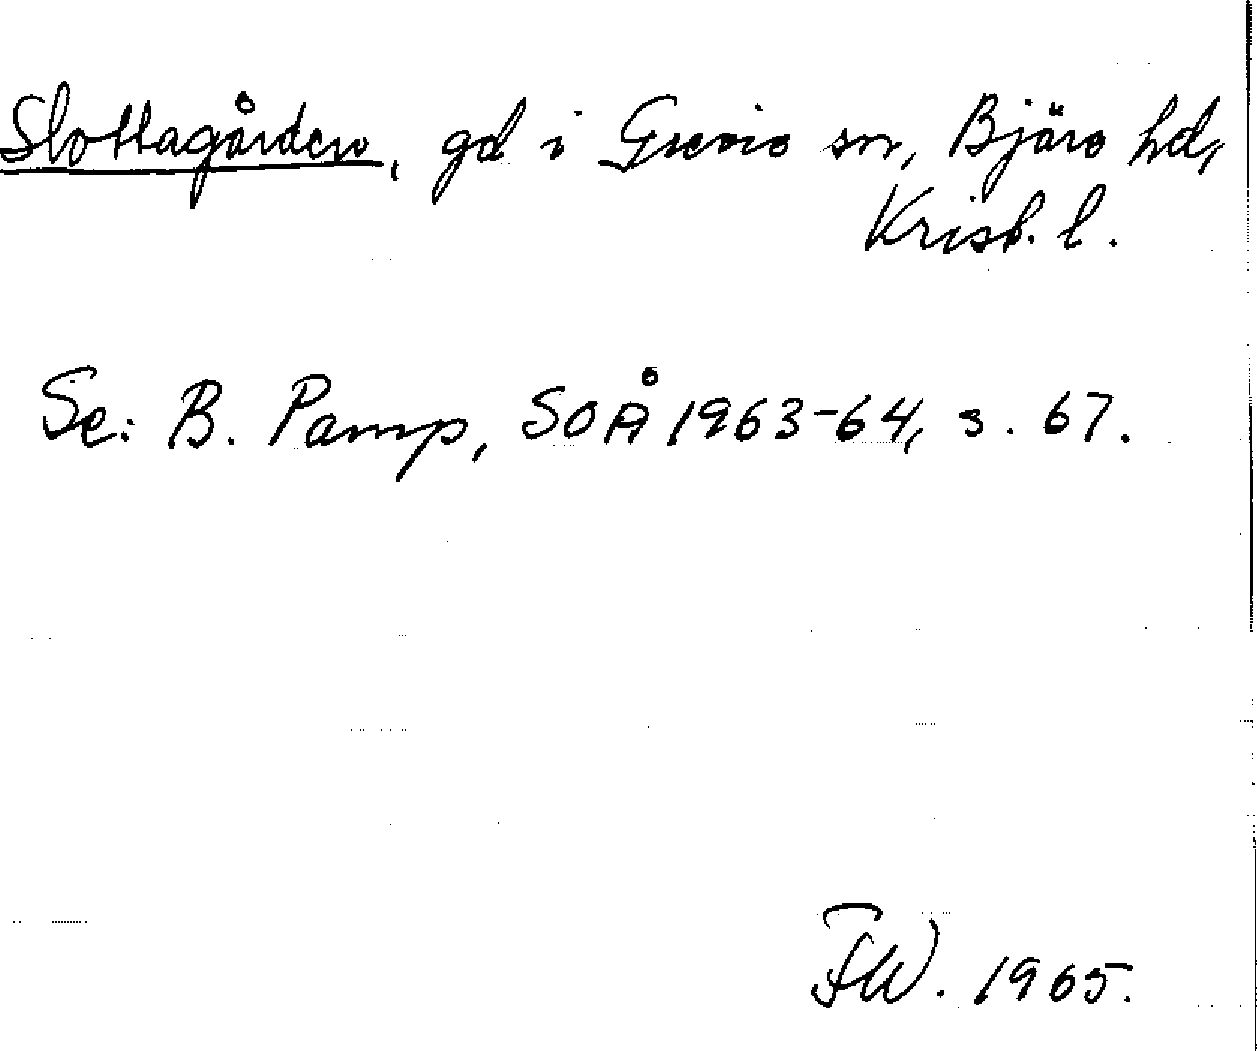 Slottagården, gd i Grevie sn, Bjäre hd,
Krist. l.
Se: B. Pamp, SOÅ 1963-64, s. 67.
FW. 1965.